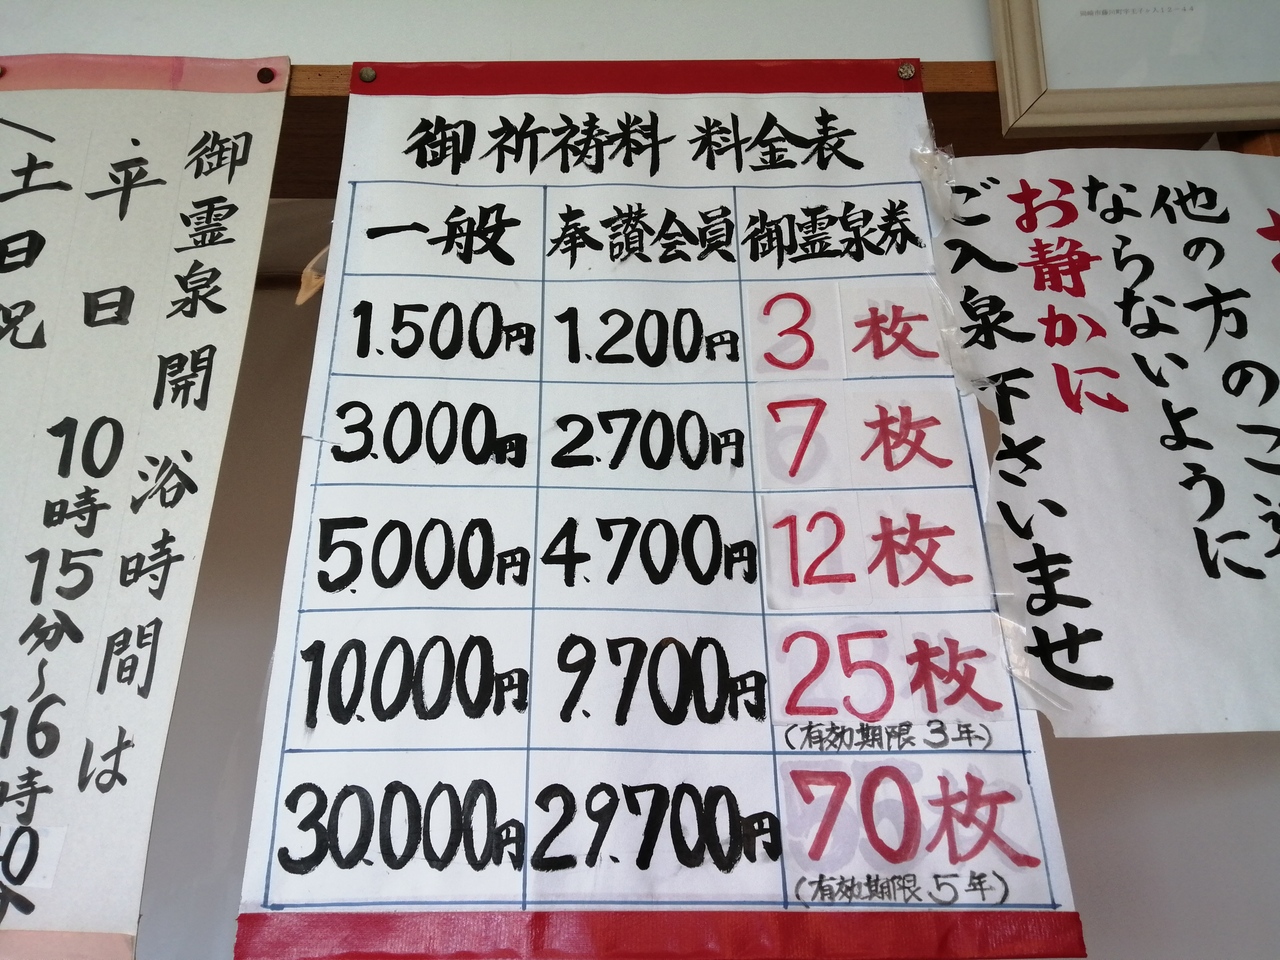 御祈祷料 料金表
一般 奉讃会員 御霊泉券
1.500円 1.200円 3枚
3.000円 2.700円 7枚
5.000円 4.700円 12枚
10.000円 9.700円 25枚
(有効期限3年)
30.000円 29.700円 70枚
(有効期限5年)
御霊泉開浴時間は
平日 10時15分~16時
土日祝
他の方の
ならないように
お静かに
ご入泉下さいませ